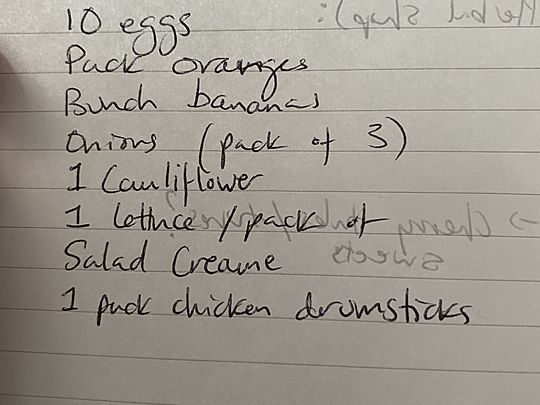 10 eggs
Pack oranges
Bunch bananas
Onions (pack of 3)
1 Cauliflower
1 lettuce / pack of
Salad Creame
1 pack chicken drumsticks